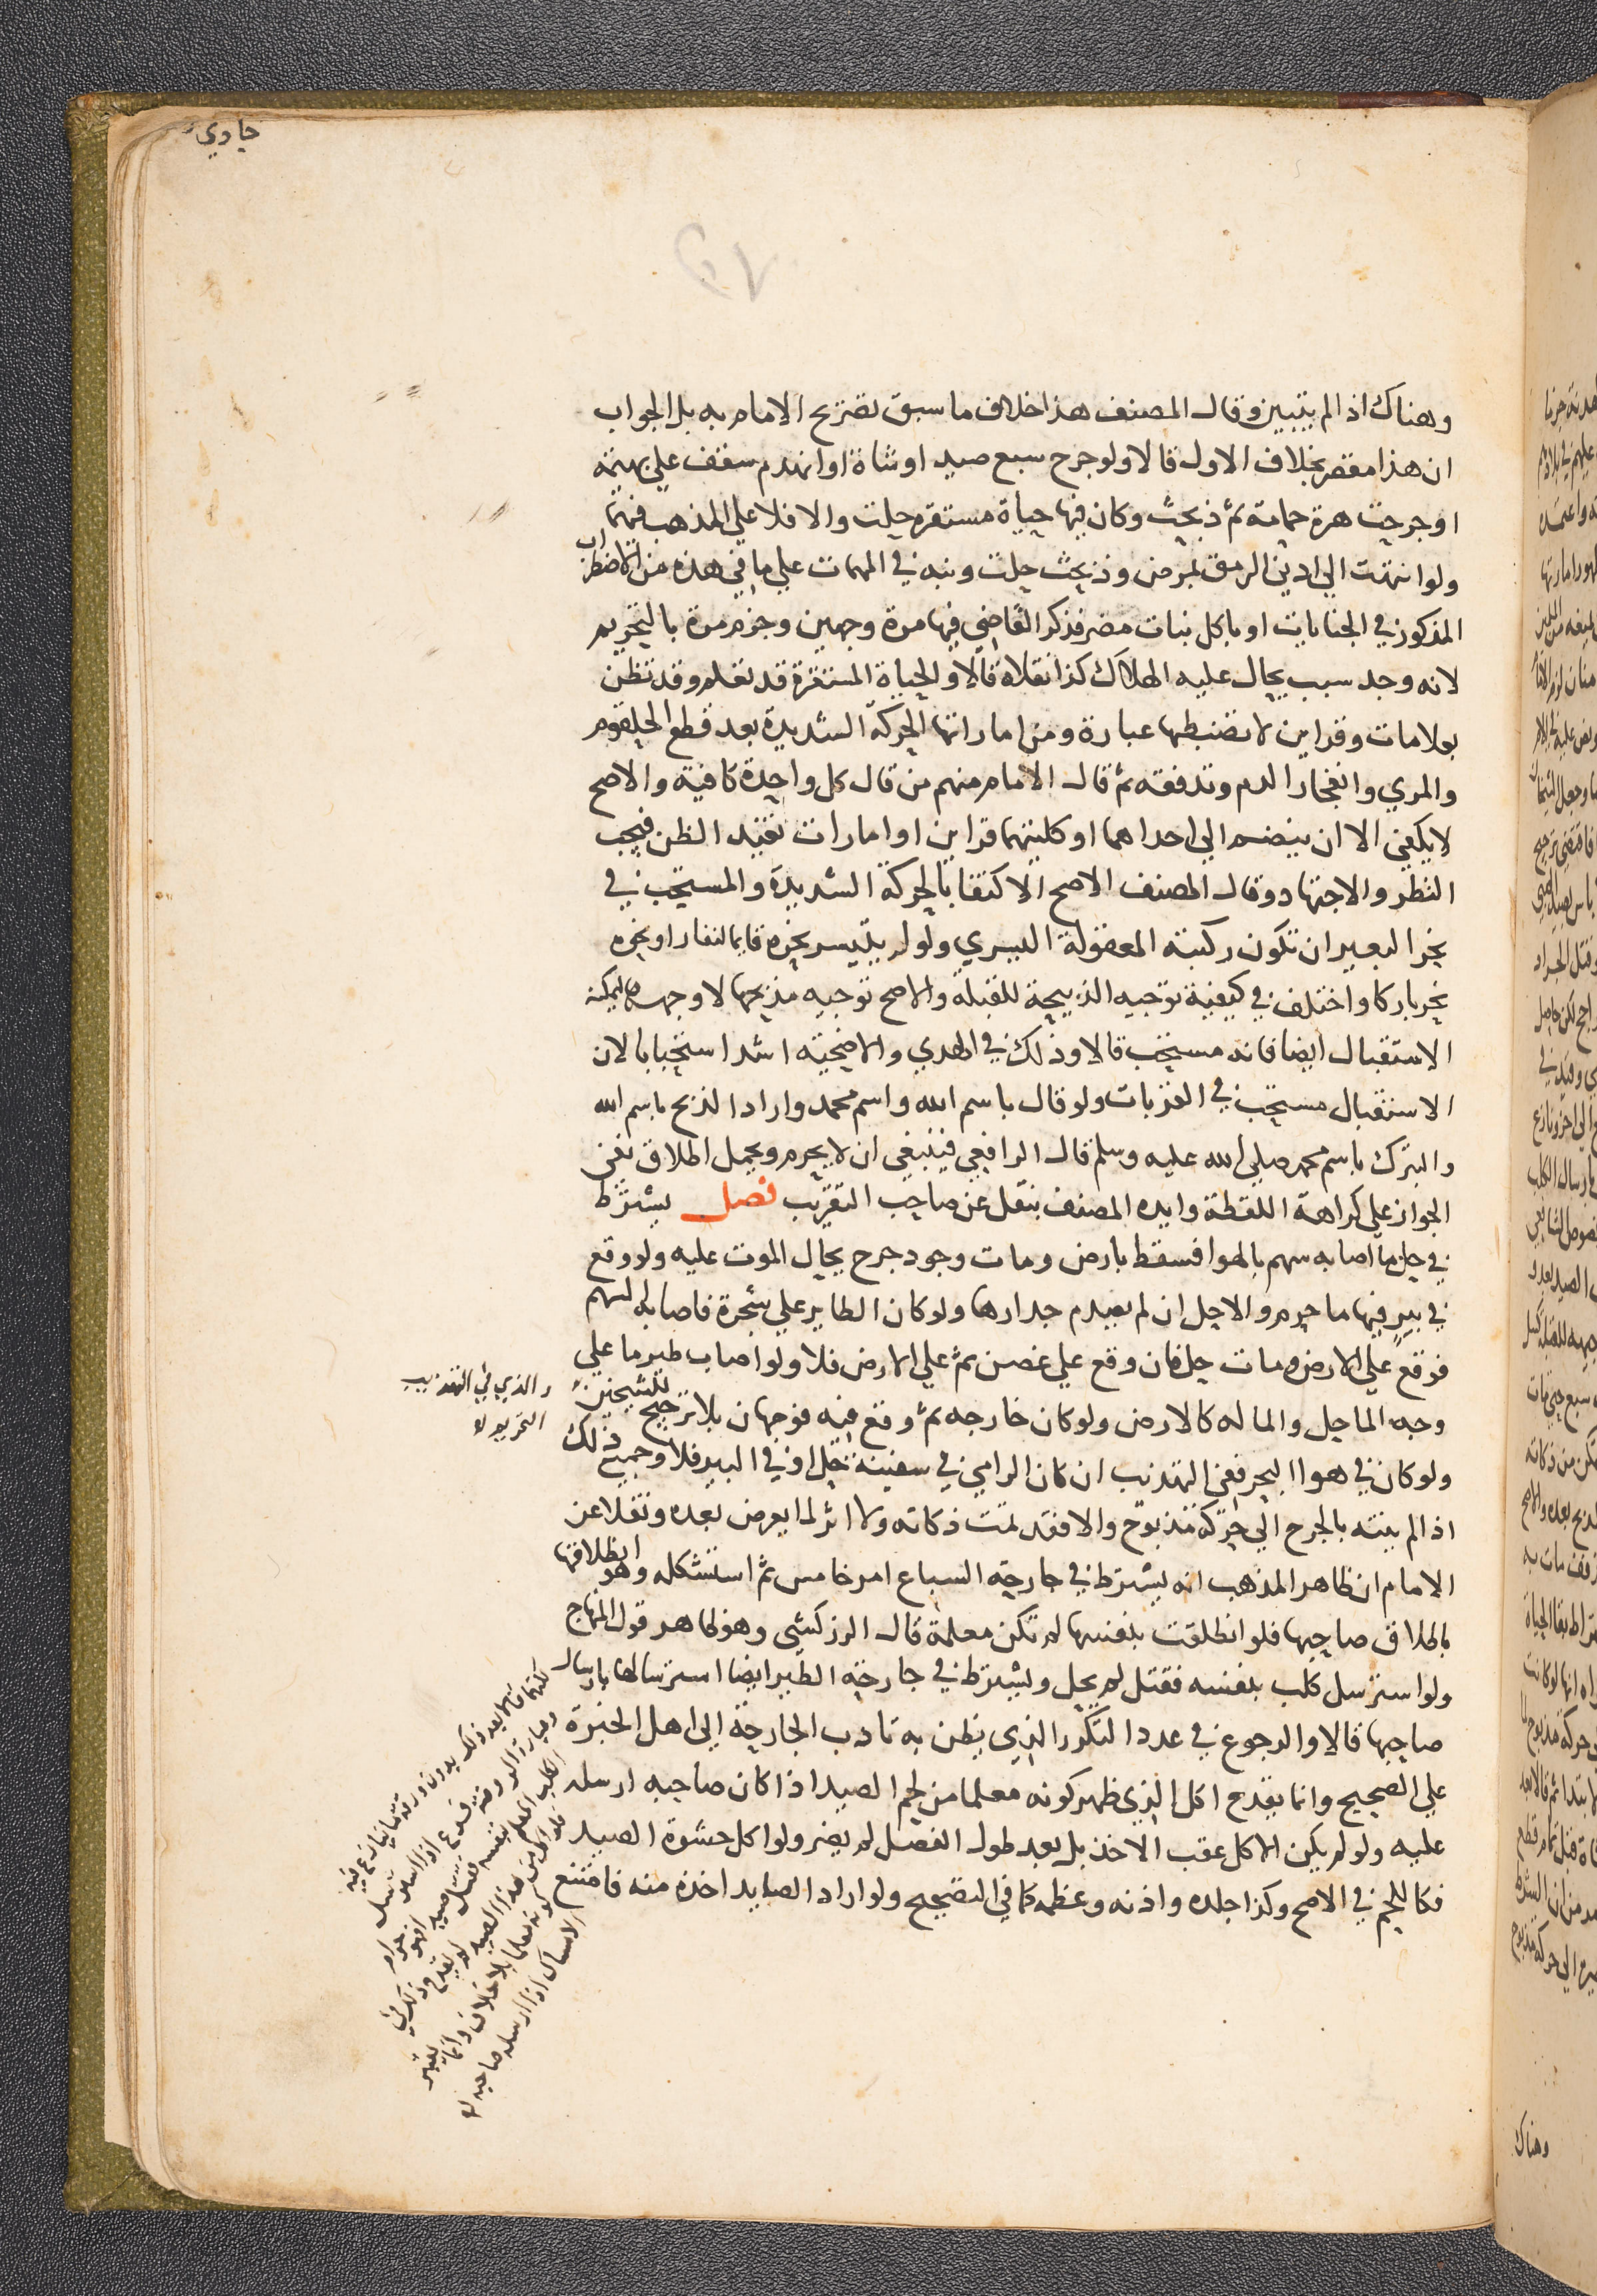 حادي
وهناك اذا لم يتبين وقال المصنف هذا خلاف ما سبق تصريح الامام به بل الجواب
ان هذا مقصر بخلاف الاول قالا ولو جرح سبع صيد او شاة او انهدم سقف علي بهيمة
او جرحت هرة حمامة ثم ذبحت وكان فيها حياة مستقره حلت والا فلا علي المذهب فيهما
ولو انتهت الي ادني الرمق بمرض وذبحت حلت ونبه في المهمات علي ما في هذه من الاضطراب
المذكور في الجنايات او باكل نبات مضر فذكر القاضي فيها مرة وجهين وجزم مرة بالتحريم
لانه وجد سبب يحال عليه الهلاك كذا نقلاه قالا والحياة المستقرة قد تعلم وقد تظن
بعلامات وقراين لا تضبطها عبارة ومن اماراتها الحركة الشديدة بعد قطع الحلقوم
والمري وانفجار الدم وتدفقه ثم قال الامام منهم من قال كل واحدة كافية والاصح
لا يكفي الا ان ينضم الي احداهما او كلتيهما قراين او امارات تفيد الظن فيجب
النظر والاجتهاد وقال المصنف الاصح الاكتفا بالحركة الشديدة والمستحب في
نحر البعير ان تكون ركبته المعقولة اليسري ولو لم يتيسر نحره قايما لنفار او نحوه
نحر باركا واختلف في كيفية توجيه الذبيحة للقبلة والاصح توجيه مذبحها لا وجهها ليمكنه
الاستقبال ايضا فانه مستحب قالا وذلك في الهدي والاضحية اشد استحبابا لان
الاستقبال مستحب في القربات ولو قال باسم الله واسم محمد واراد الذبح باسم الله
والتبرك باسم محمد صلي الله عليه وسلم قال الرافعي فينبغي ان لا يحرم ويحمل اطلاق نفي
الجواز علي كراهة اللفظة وايده المصنف بنقل عن صاحب التقريب فصل يشترط
في حل ما اصابه سهم بالهوا فسقط بارض ومات وجود جرح يحال الموت عليه ولو وقع
في بير فيها ما حرم والا حل ان لم يصدم جدارها ولو كان الطاير علي شجرة فاصابه السهم
فوقع علي الارض ومات حل فان وقع علي غصن ثم علي الارض فلا ولو اصاب طير ما علي
وجه الما حل والما له كالارض ولو كان خارجه ثم وقع فيه فوجهان بلا ترجيح للشيخين
والذي في التهذيب
التحريم
ولو كان في هوا البحر ففي التهذيب ان كان الرامي في سفينة حل او في البر فلا وجميع ذلك
اذا لم ينته بالجرح الي حركة مذبوح والا فقد تمت ذكاته ولا اثر لما يعرض بعده ونقلا عن
الامام ان ظاهر المذهب انه يشترط في جارحة السباع امر خامس ثم استشكله وهو انطلاقها
باطلاق صاحبها فلو انطلقت بنفسها لم تكن معلمة قال الزركشي وهو ظاهر قول المنهاج
ولو استرسل كلب بنفسه فقتل لم يحل ويشترط في جارحة الطير ايضا استرسالها بارسال
صاحبها قالا والرجوع في عدد التكرر الذي يظن به تادب الجارحة الي اهل الخبرة
علي الصحيح وانما يقدح اكل الذي ظهر كونه معلما من لحم الصيد اذا كان صاحبه ارسله
عليه ولو لم يكن الاكل عقب الاخذ بل بعد طول الفصل لم يضر ولو اكل حشوة الصيد
فكاللحم في الاصح وكذا جلده واذنه وعظمه كما في التصحيح ولو اراد الصايد اخذه منه فامتنع
وعبارة الروضة فرع اذا استرسل
الكلب المعلم بنفسه فقتل صيدا فهو حرام
فلو اكل من هذا الصيد لم يقدح ذلك في
كونه معلما بلا خلاف وانما يعتبر
الامساك اذا ارسله صاحبه